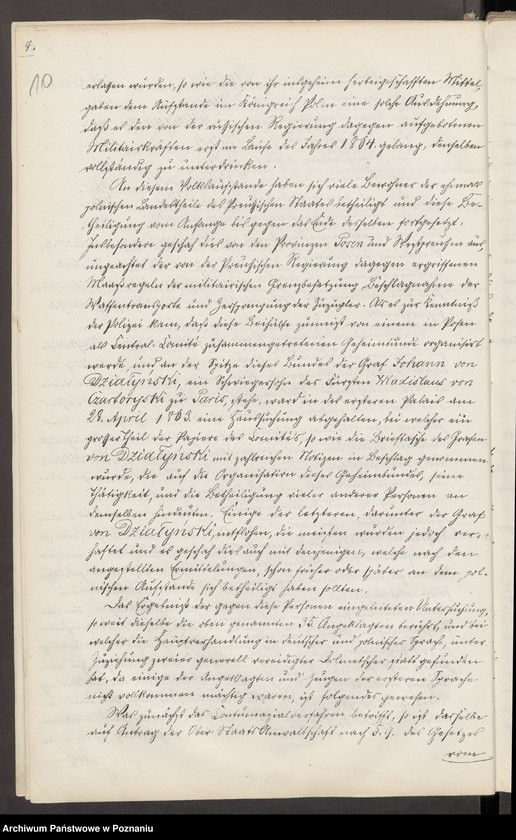 8.
10
erlassen wurden, so wie die von ihr insgeheim herbeigeschafften Mittel,
gaben dem Aufstande im Königreich Polen eine solche Ausdehnung,
daß es den von der russischen Regierung dagegen aufgebotenen
Militairkräften erst im Laufe des Jahres 1864 gelang, denselben
vollständig zu unterdrücken.
An diesem Volksaufstande haben sich viele Bewohner der ehemals
polnischen Landestheile des Preußischen Staates betheiligt und diese Be-
theiligung vom Anfange bis gegen das Ende desselben fortgesetzt.
Insbesondere geschah dies von den Provinzen Posen und Westpreußen aus,
ungeachtet der von der Preußischen Regierung dagegen ergriffenen
Maaßregeln der militairischen Grenzbesetzung, Beschlagnahme der
Waffentransporte und Zersprengung der Zuzügler. Als es zur Kenntniß
der Polizei kam, daß diese Beihülfe zumeist von einem in Posen
als Central-Comité zusammengetretenen Geheimbunde organisirt
werde, und an der Spitze dieses Bundes der Graf Johann von
Działyński, ein Schwiegersohn des Fürsten Wladislaus von
Czartoryski zu Paris, stehe, ward in des ersteren Palais am
28. April 1863. eine Haussuchung abgehalten, bei welcher ein
großer Theil der Papiere des Comités, so wie die Brieftasche des Grafen
von Działyński mit zahlreichen Notizen in Beschlag genommen
wurde, die auf die Organisation dieses Geheimbundes, seine
Thätigkeit, und die Betheiligung vieler anderer Personen an
demselben hindeuten. Einige der letzteren, darunter der Graf
von Działyński, entflohen, die meisten wurden jedoch ver-
haftet und es geschah dies auch mit denjenigen, welche nach den
angestellten Ermittelungen, schon früher oder später an dem pol-
nischen Aufstande sich betheiligt haben sollten.
Das Ergebniß der gegen diese Personen eingeleiteten Untersuchung,
so weit dieselbe die oben genannten Angeklagten betrifft, und bei
welcher die Hauptverhandlung in deutscher und polnischer Sprache, unter
Zuziehung zweier generell vereidigter Dolmetscher stattgefunden
hat, da einige der Angeklagten und Zeugen der ersteren Sprache
nicht vollkommen mächtig waren, ist folgendes gewesen.
Was zunächst das Contumazialverfahren betrifft, so ist dasselbe
auf Antrag der Ober-Staats Anwaltschaft nach §. 9. des Gesetzes
vom
Archiwum Państwowe w Poznaniu